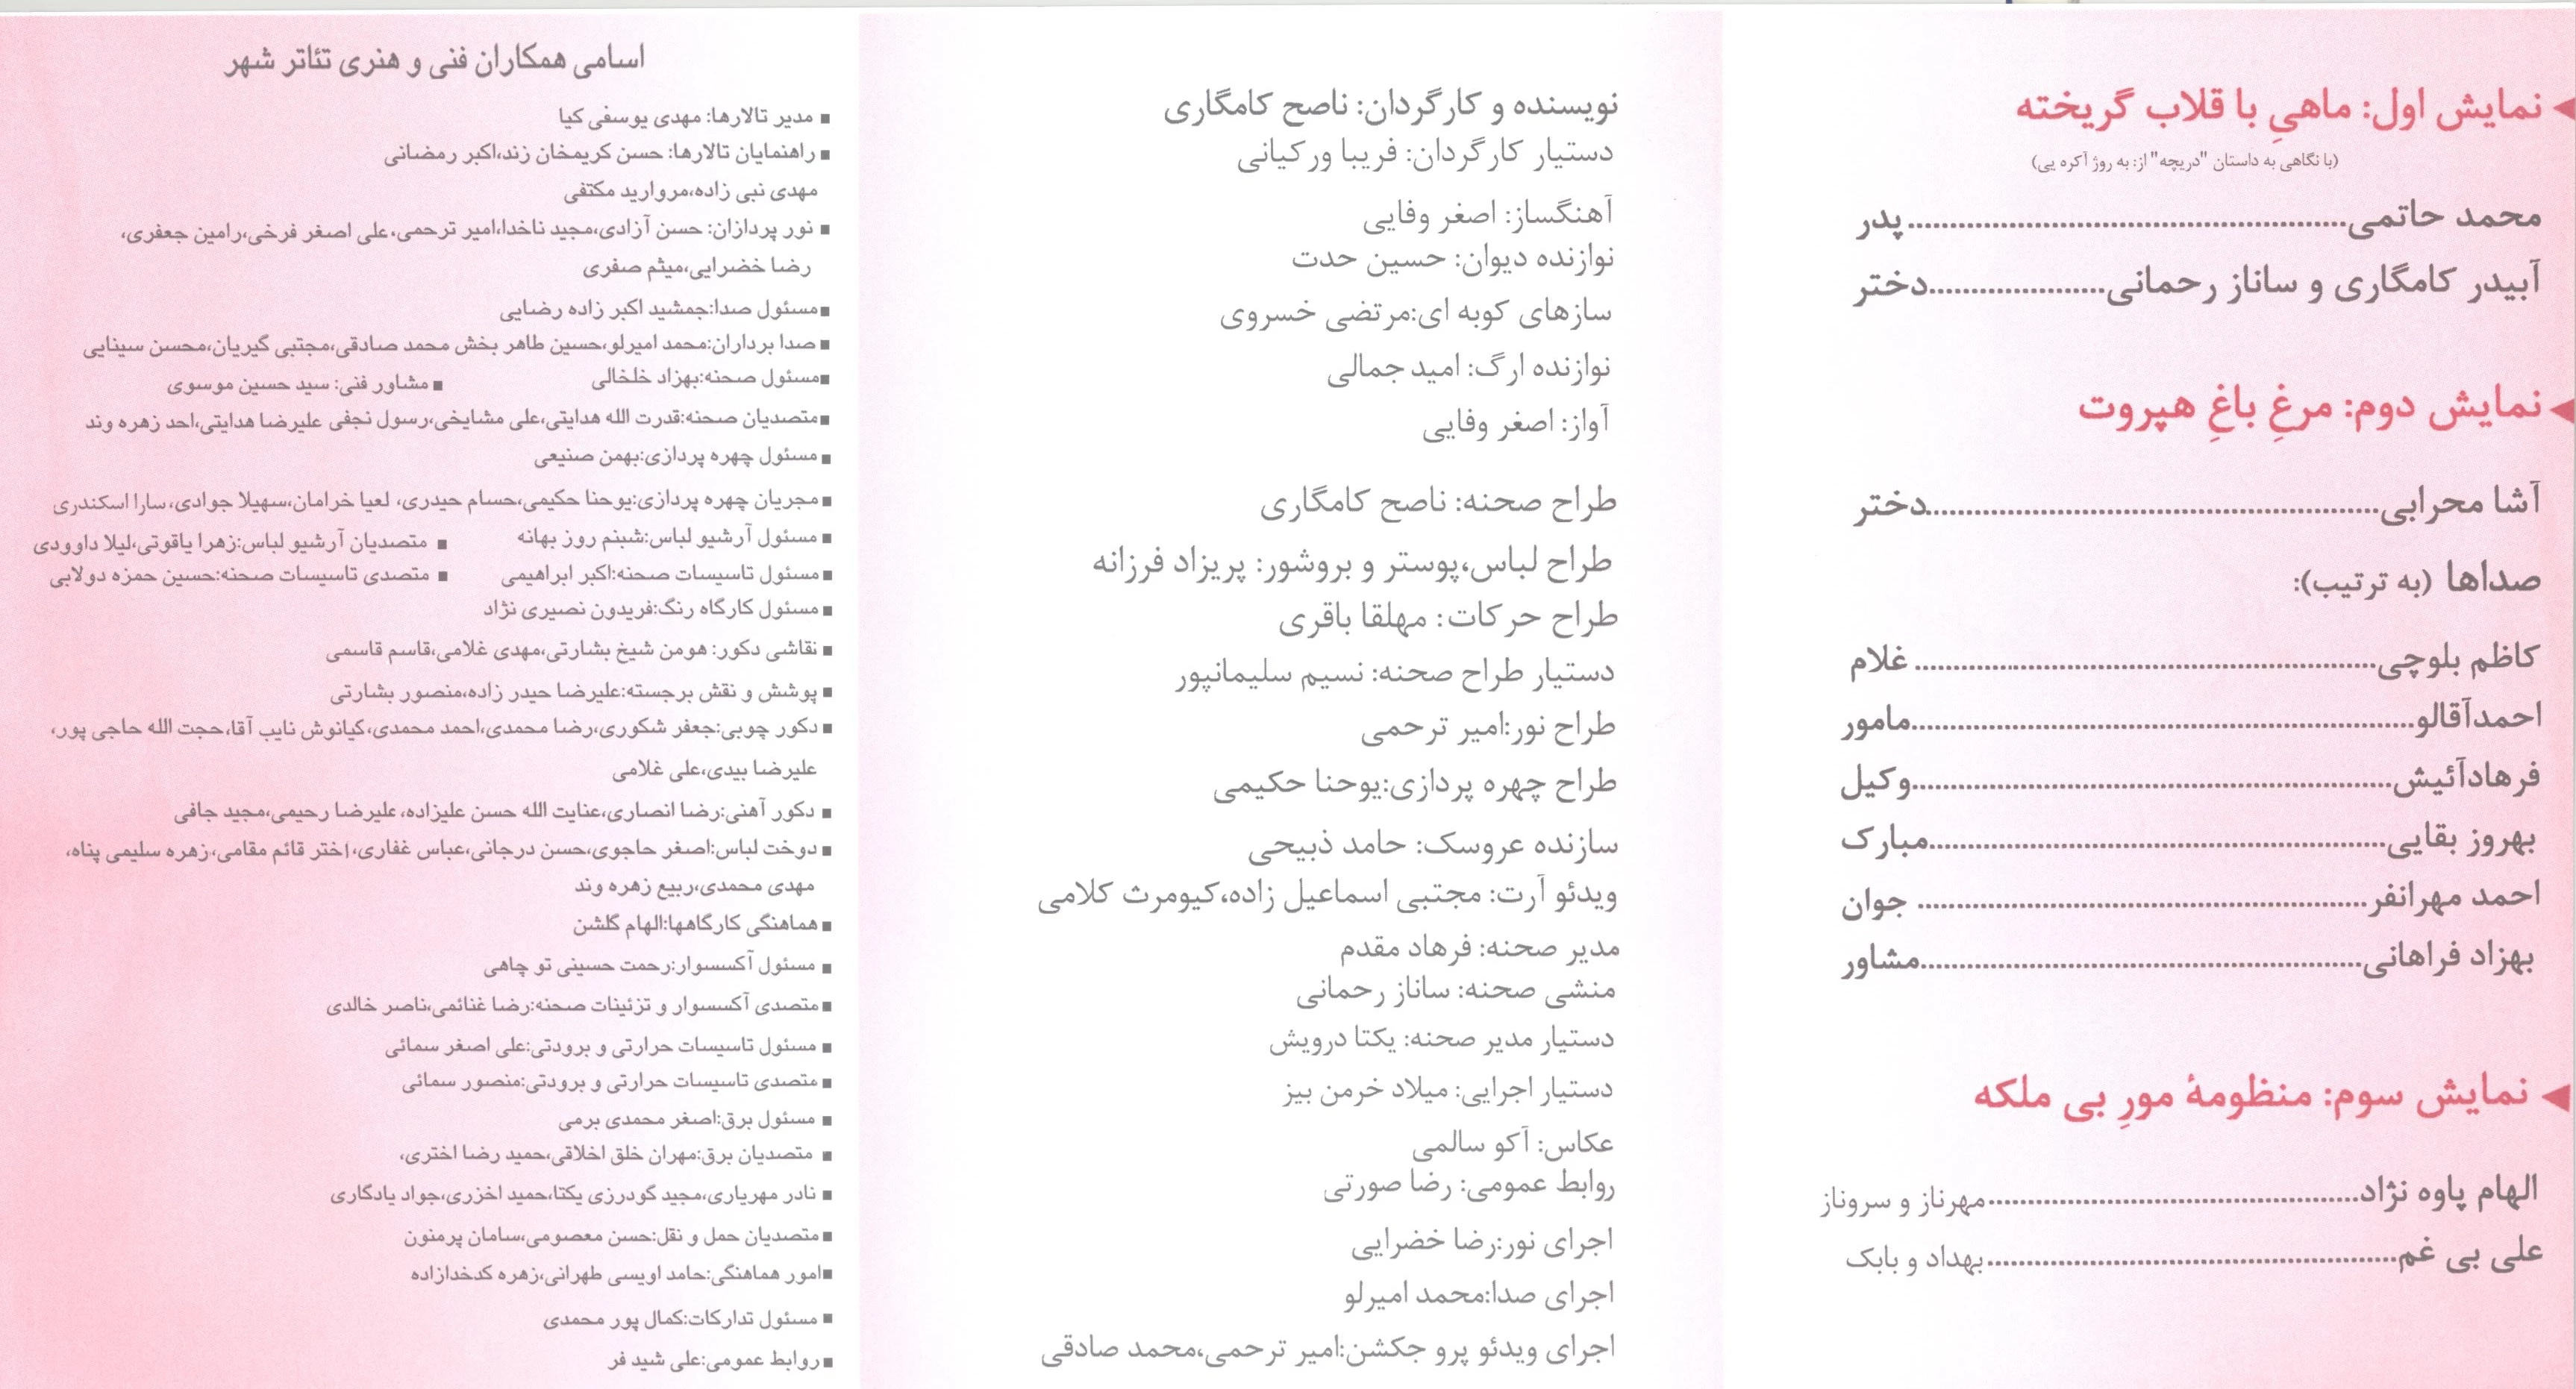 نمایش اول: ماهیِ با قلاب گریخته
(با نگاهی به داستان "دریچه" از: به روژ آکره یی)
محمد حاتمی..........پدر
آبیدر کامگاری و ساناز رحمانی..........دختر
نمایش دوم: مرغِ باغِ هپروت
آشا محرابی..........دختر
صداها (به ترتیب):
کاظم بلوچی..........غلام
احمدآقالو..........مامور
فرهادآئیش..........وکیل
بهروز بقایی..........مبارک
احمد مهرانفر..........جوان
بهزاد فراهانی..........مشاور
نمایش سوم: منظومهٔ مورِ بی ملکه
الهام پاوه نژاد..........مهرناز و سروناز
علی بی غم..........بهداد و بابک
نویسنده و کارگردان: ناصح کامگاری
دستیار کارگردان: فریبا ورکیانی
آهنگساز: اصغر وفایی
نوازنده دیوان: حسین حدت
سازهای کوبه ای:مرتضی خسروی
نوازنده ارگ: امید جمالی
آواز: اصغر وفایی
طراح صحنه: ناصح کامگاری
طراح لباس،پوستر و بروشور: پریزاد فرزانه
طراح حرکات: مهلقا باقری
دستیار طراح صحنه: نسیم سلیمانپور
طراح نور:امیر ترحمی
طراح چهره پردازی:یوحنا حکیمی
سازنده عروسک: حامد ذبیحی
ویدئو آرت: مجتبی اسماعیل زاده،کیومرث کلامی
مدیر صحنه: فرهاد مقدم
منشی صحنه: ساناز رحمانی
دستیار مدیر صحنه: یکتا درویش
دستیار اجرایی: میلاد خرمن بیز
عکاس: آکو سالمی
روابط عمومی: رضا صورتی
اجرای نور:رضا خضرایی
اجرای صدا:محمد امیرلو
اجرای ویدئو پرو جکشن:امیر ترحمی،محمد صادقی
اسامی همکاران فنی و هنری تئاتر شهر
■ مدیر تالارها: مهدی یوسفی کیا
■ راهنمایان تالارها: حسن کریمخان زند،اکبر رمضانی
مهدی نبی زاده،مروارید مکتفی
■ نور پردازان: حسن آزادی،مجید ناخدا،امیر ترحمی،علی اصغر فرخی،رامین جعفری،
رضا خضرایی،میثم صفری
■مسئول صدا:جمشید اکبر زاده رضایی
■ صدا برداران:محمد امیرلو،حسین طاهر بخش محمد صادقی،مجتبی گیریان،محسن سینایی
■مسئول صحنه:بهزاد خلخالی ■ مشاور فنی: سید حسین موسوی
■متصدیان صحنه:قدرت الله هدایتی،علی مشایخی،رسول نجفی علیرضا هدایتی،احد زهره وند
■ مسئول چهره پردازی:بهمن صنیعی
■ مجریان چهره پردازی:یوحنا حکیمی،حسام حیدری، لعیا خرامان،سهیلا جوادی،سارا اسکندری
■ مسئول آرشیو لباس:شبنم روز بهانه ■ متصدیان آرشیو لباس:زهرا یاقوتی،لیلا داوودی
■مسئول تاسیسات صحنه:اکبر ابراهیمی ■ متصدی تاسیسات صحنه:حسین حمزه دولابی
■ مسئول کارگاه رنگ:فریدون نصیری نژاد
■ نقاشی دکور: هومن شیخ بشارتی،مهدی غلامی،قاسم قاسمی
■ پوشش و نقش برجسته:علیرضا حیدر زاده،منصور بشارتی
■ دکور چوبی:جعفر شکوری،رضا محمدی،احمد محمدی،کیانوش نایب آقا،حجت الله حاجی پور،
علیرضا بیدی،علی غلامی
■ دکور آهنی:رضا انصاری،عنایت الله حسن علیزاده،علیرضا رحیمی،مجید جافی
■ دوخت لباس:اصغر حاجوی،حسن درجانی،عباس غفاری،اختر قائم مقامی،زهره سلیمی پناه،
مهدی محمدی،ربیع زهره وند
■ هماهنگی کارگاهها:الهام گلشن
■ مسئول آکسسوار:رحمت حسینی تو چاهی
■ متصدی آکسسوار و تزئینات صحنه:رضا غنائمی،ناصر خالدی
■ مسئول تاسیسات حرارتی و برودتی:علی اصغر سمائی
■ متصدی تاسیسات حرارتی و برودتی:منصور سمائی
■ مسئول برق:اصغر محمدی برمی
■ متصدیان برق:مهران خلق اخلاقی،حمید رضا اختری،
■ نادر مهریاری،مجید گودرزی یکتا،حمید اخزری،جواد یادگاری
■ متصدیان حمل و نقل:حسن معصومی،سامان پرمنون
■امور هماهنگی:حامد اویسی طهرانی،زهره کدخدازاده
■ مسئول تدارکات:کمال پور محمدی
■ روابط عمومی:علی شید فر